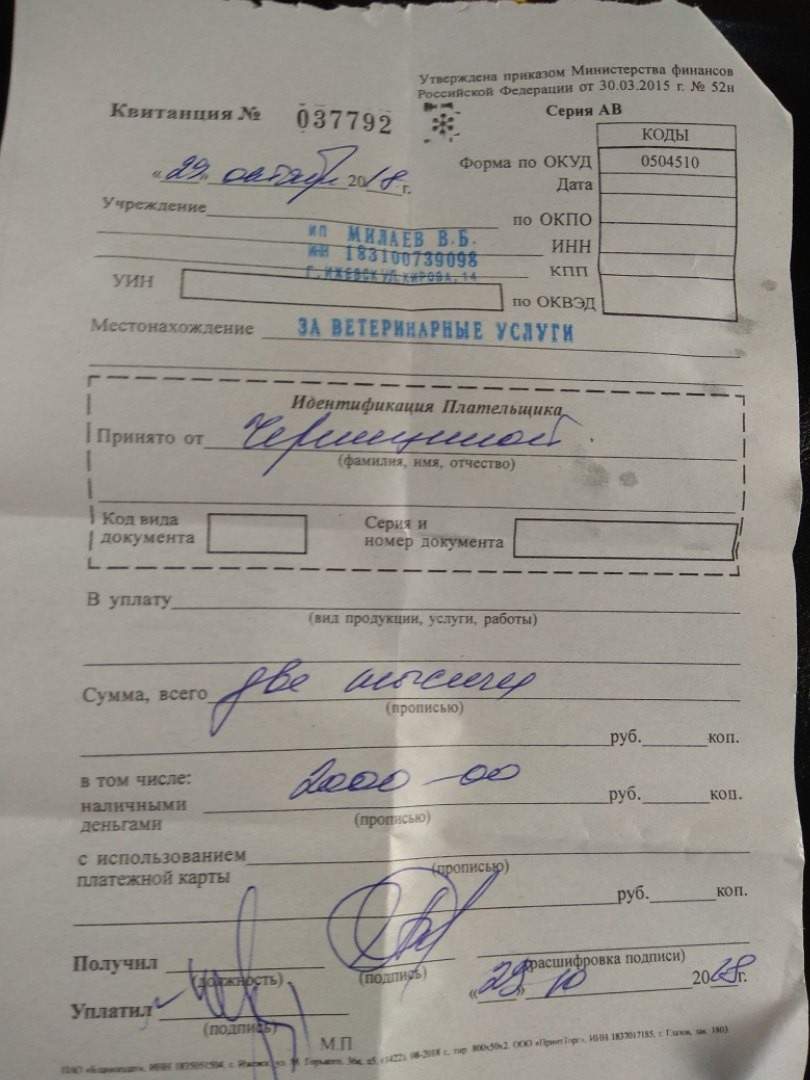 Утверждена приказом Министерства финансов
Российской Федерации от 30.03.2015 г. № 52н
Квитанция № 037792
Серия АВ
КОДЫ
Форма по ОКУД 0504510
« 29 » октября 2018 г.
Дата
Учреждение
по ОКПО
ИП МИЛАЕВ В.Б.
ИНН 183100739098
ИНН
Г. ИЖЕВСК УЛ.КИРОВА, 14
КПП
УИН
по ОКВЭД
Местонахождение ЗА ВЕТЕРИНАРНЫЕ УСЛУГИ
Идентификация Плательщика
Принято от
(фамилия, имя, отчество)
Код вида
документа
Серия и
номер документа
В уплату
(вид продукции, услуги, работы)
Сумма, всего две тысячи
(прописью)
руб. коп.
в том числе:
наличными
деньгами
2000-00
руб. коп.
(прописью)
с использованием
платежной карты
(прописью)
руб. коп.
Получил
(должность)
(подпись)
(расшифровка подписи)
Уплатил
(подпись)
« 29 » 10 2018 г.
М.П